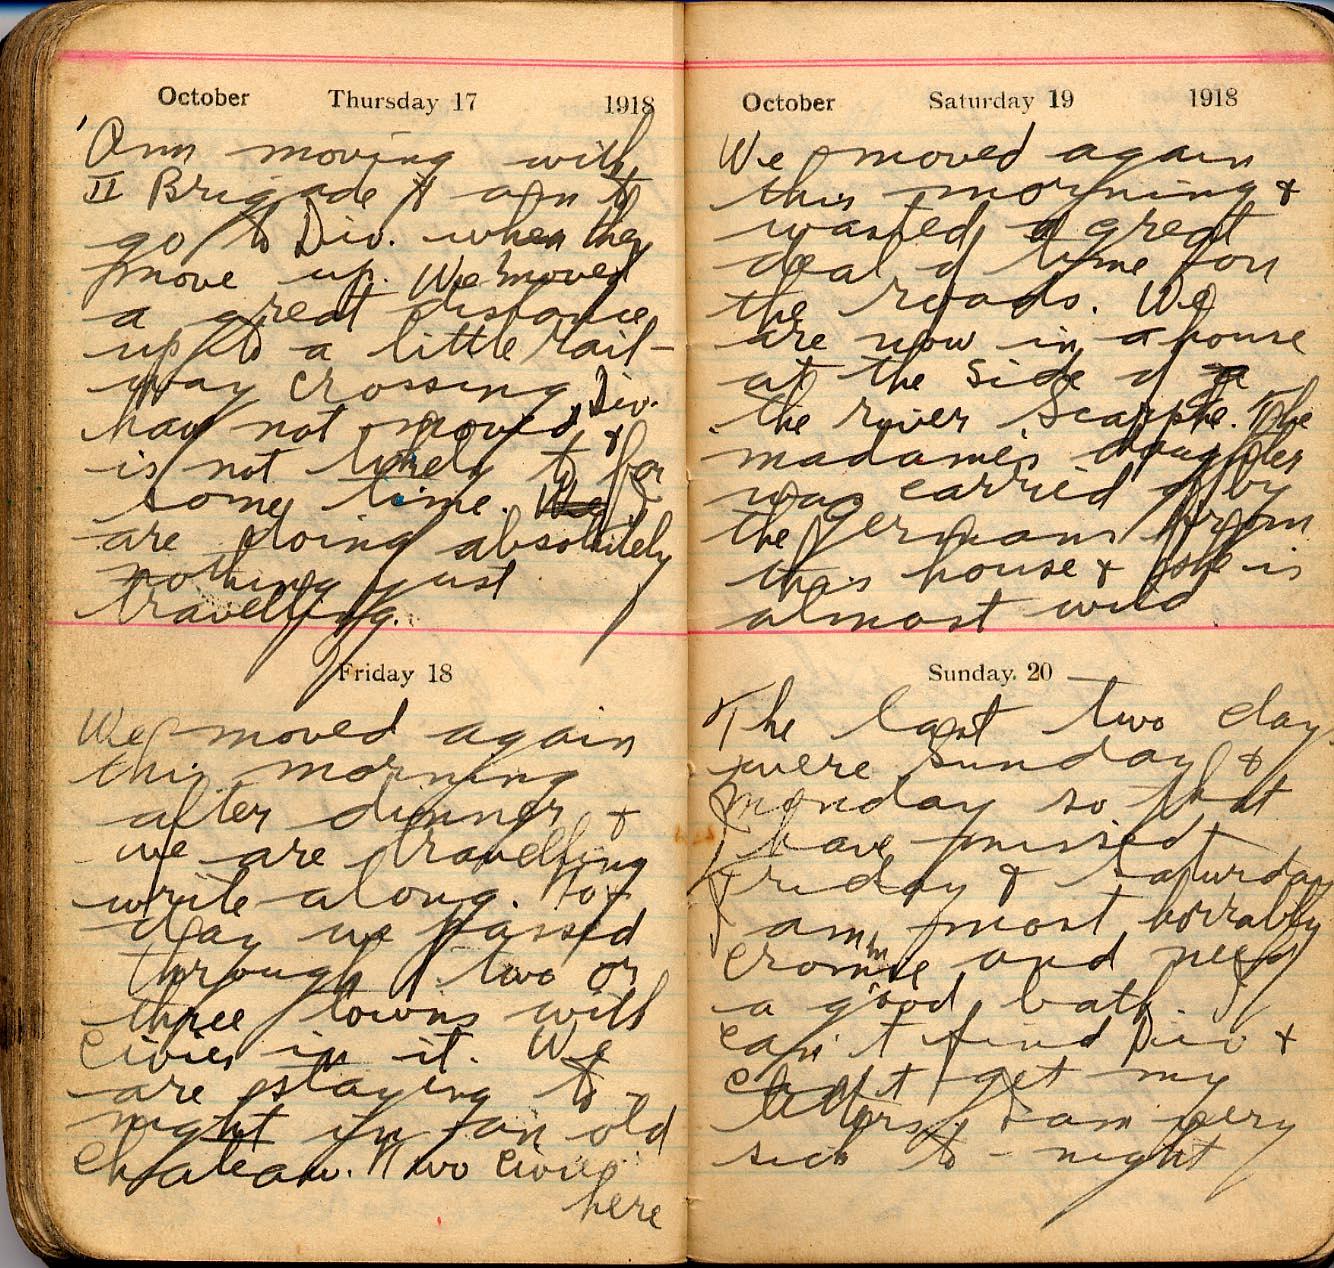 October Thursday 17 1918
Am moving with
II Brigade & am to
go to Div. when they
move up. We moved
a great distance
up to a little rail-
way crossing Div.
have not moved &
is not likely to for
some time. We
are doing absolutely
nothing just
travelling.
Friday 18
We moved again
this morning
after dinner &
we are travelling
write along. To-
day we passed
through two or
three towns with
civies in it. We
are staying to-
night in an old
Chateau. Two civies
here
October Saturday 19 1918
We moved again
this morning &
wasted a great
deal of time on
the roads. We
are now in a house
at the side of
the river Scarphe. The
madame's daughter
was carried off by
the germans from
this house & she is
almost wild
Sunday. 20
The last two days
were Sunday &
Monday so that
I have missed
Friday & Saturday
I am most horrably
and need
a good bath.
can't find Div &
can't get my
letters I am very
sick to-night